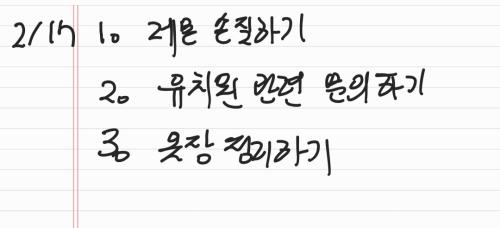 2/17 1. 레몬 손질하기
2. 유치원 관련 문의하기
3. 옷장 정리하기